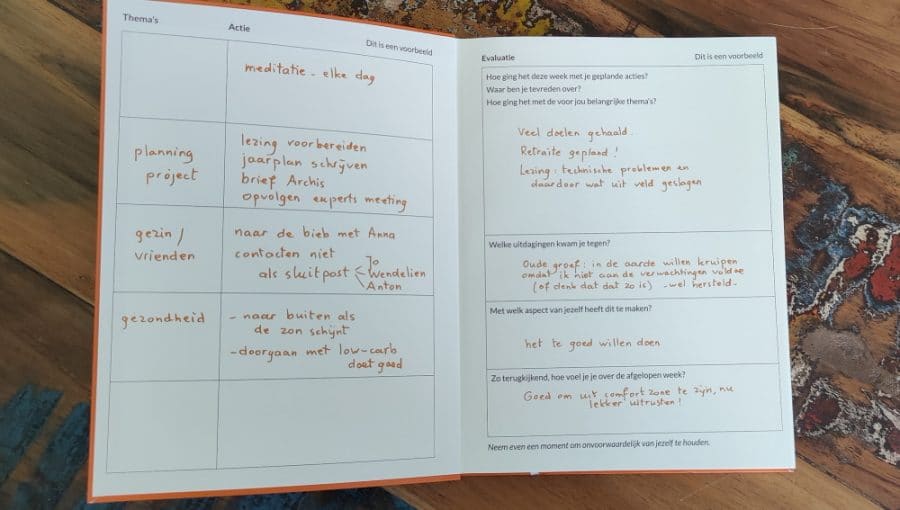 Thema's
Actie
Dit is een voorbeeld
meditatie - elke dag
planning
project
lezing voorbereiden
jaarplan schrijven
brief Archis
opvolgen experts meeting
gezin /
vrienden
naar de bieb met Anna
contacten niet
als sluitpost
Jo
Wendelien
Anton
gezondheid
- naar buiten als
de zon schijnt
- doorgaan met low-carb
doet goed
Evaluatie
Dit is een voorbeeld
Hoe ging het deze week met je geplande acties?
Waar ben je tevreden over?
Hoe ging het met de voor jou belangrijke thema's?
Veel doelen gehaald.
Retraite gepland!
Lezing: technische problemen en
daardoor wat uit veld geslagen
Welke uitdagingen kwam je tegen?
Oude groef: in de aarde willen kruipen
omdat ik niet aan de verwachtingen voldoe
(of denk dat dat zo is) - wel hersteld -
Met welk aspect van jezelf heeft dit te maken?
het te goed willen doen
Zo terugkijkend, hoe voel je je over de afgelopen week?
Goed om uit comfort zone te zijn, nu
lekker uitrusten!
Neem even een moment om onvoorwaardelijk van jezelf te houden.